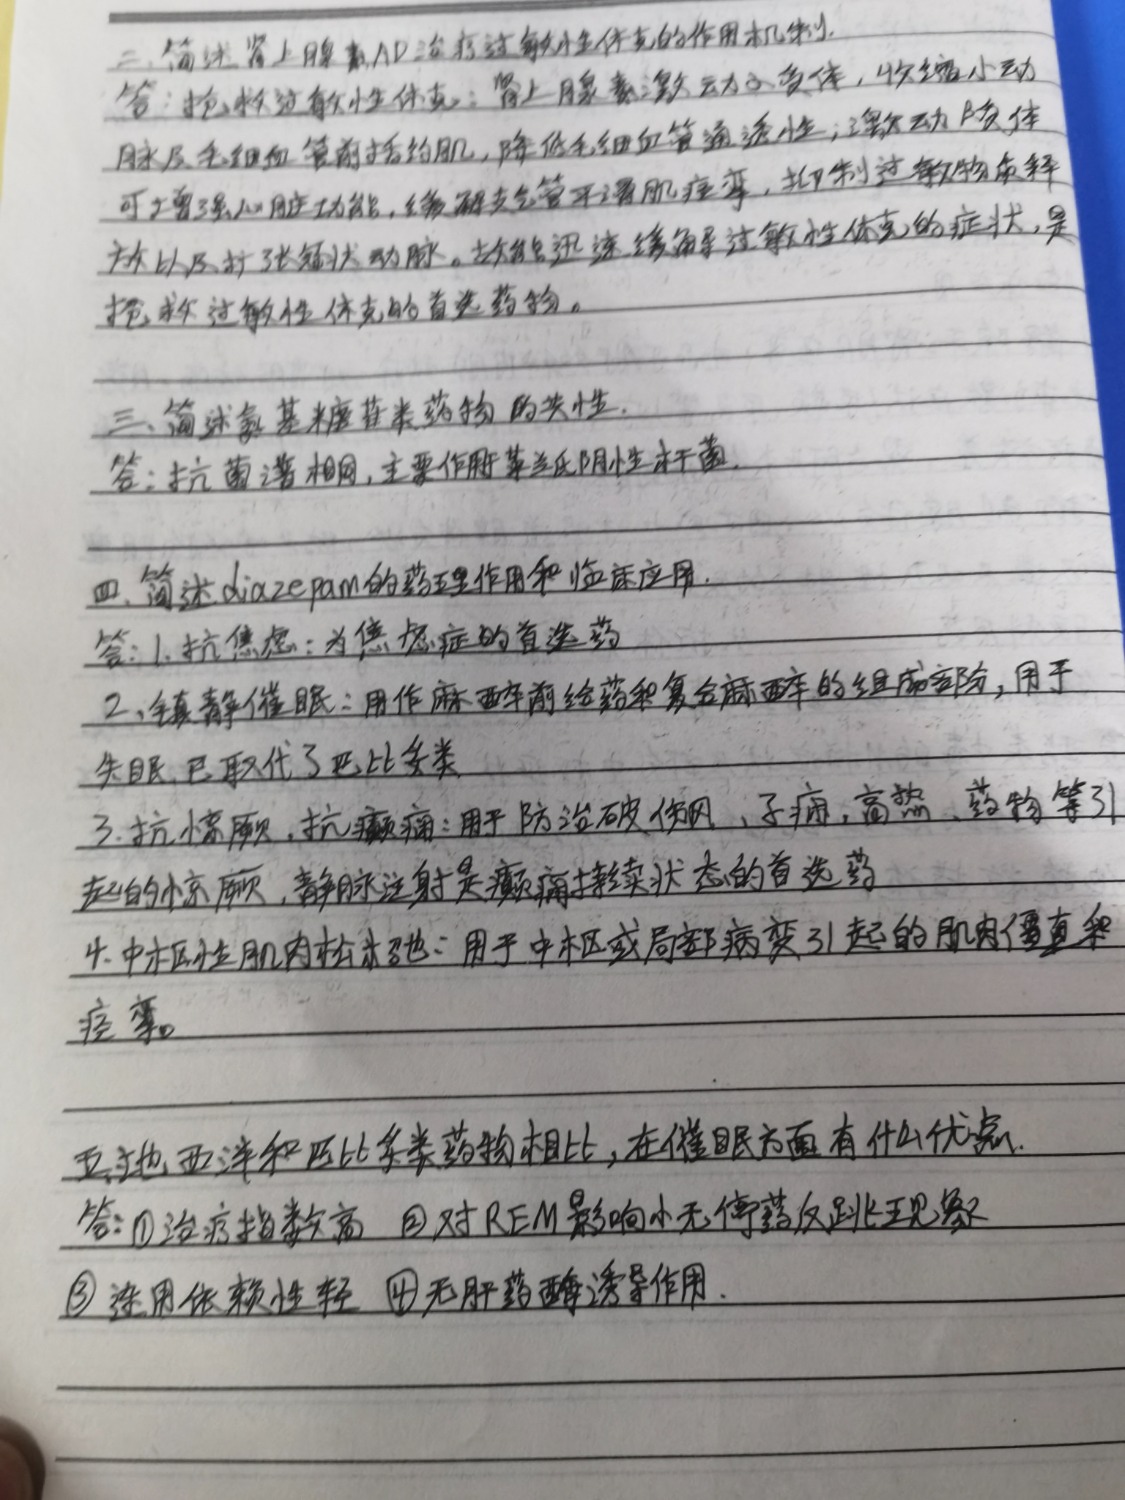 二、简述肾上腺素AD治疗过敏性休克的作用机制.
答:抢救过敏性休克:肾上腺素激动α受体,收缩小动
脉及毛细血管前括约肌,降低毛细血管通透性;激动β受体
可增强心脏功能,缓解支气管平滑肌痉挛,抑制过敏物质释
放以及扩张冠状动脉。故能迅速缓解过敏性休克的症状,是
抢救过敏性休克的首选药物。
三、简述氨基糖苷类药物的共性.
答:抗菌谱相同,主要作用于革兰氏阴性杆菌.
四、简述diazepam的药理作用和临床应用.
答:1.抗焦虑:为焦虑症的首选药
2、镇静催眠:用作麻醉前给药和复合麻醉的组成部份,用于
失眠,已取代了巴比妥类
3.抗惊厥,抗癫痫:用于防治破伤风、子痫,高热、药物等引
起的惊厥,静脉注射是癫痫持续状态的首选药
4.中枢性肌肉松弛:用于中枢或局部病变引起的肌肉僵直和
痉挛。
五、地西泮和巴比妥类药物相比,在催眠方面有什么优点.
答:①治疗指数高 ②对REM影响小无停药反跳现象
③连用依赖性轻 ④无肝药酶诱导作用.